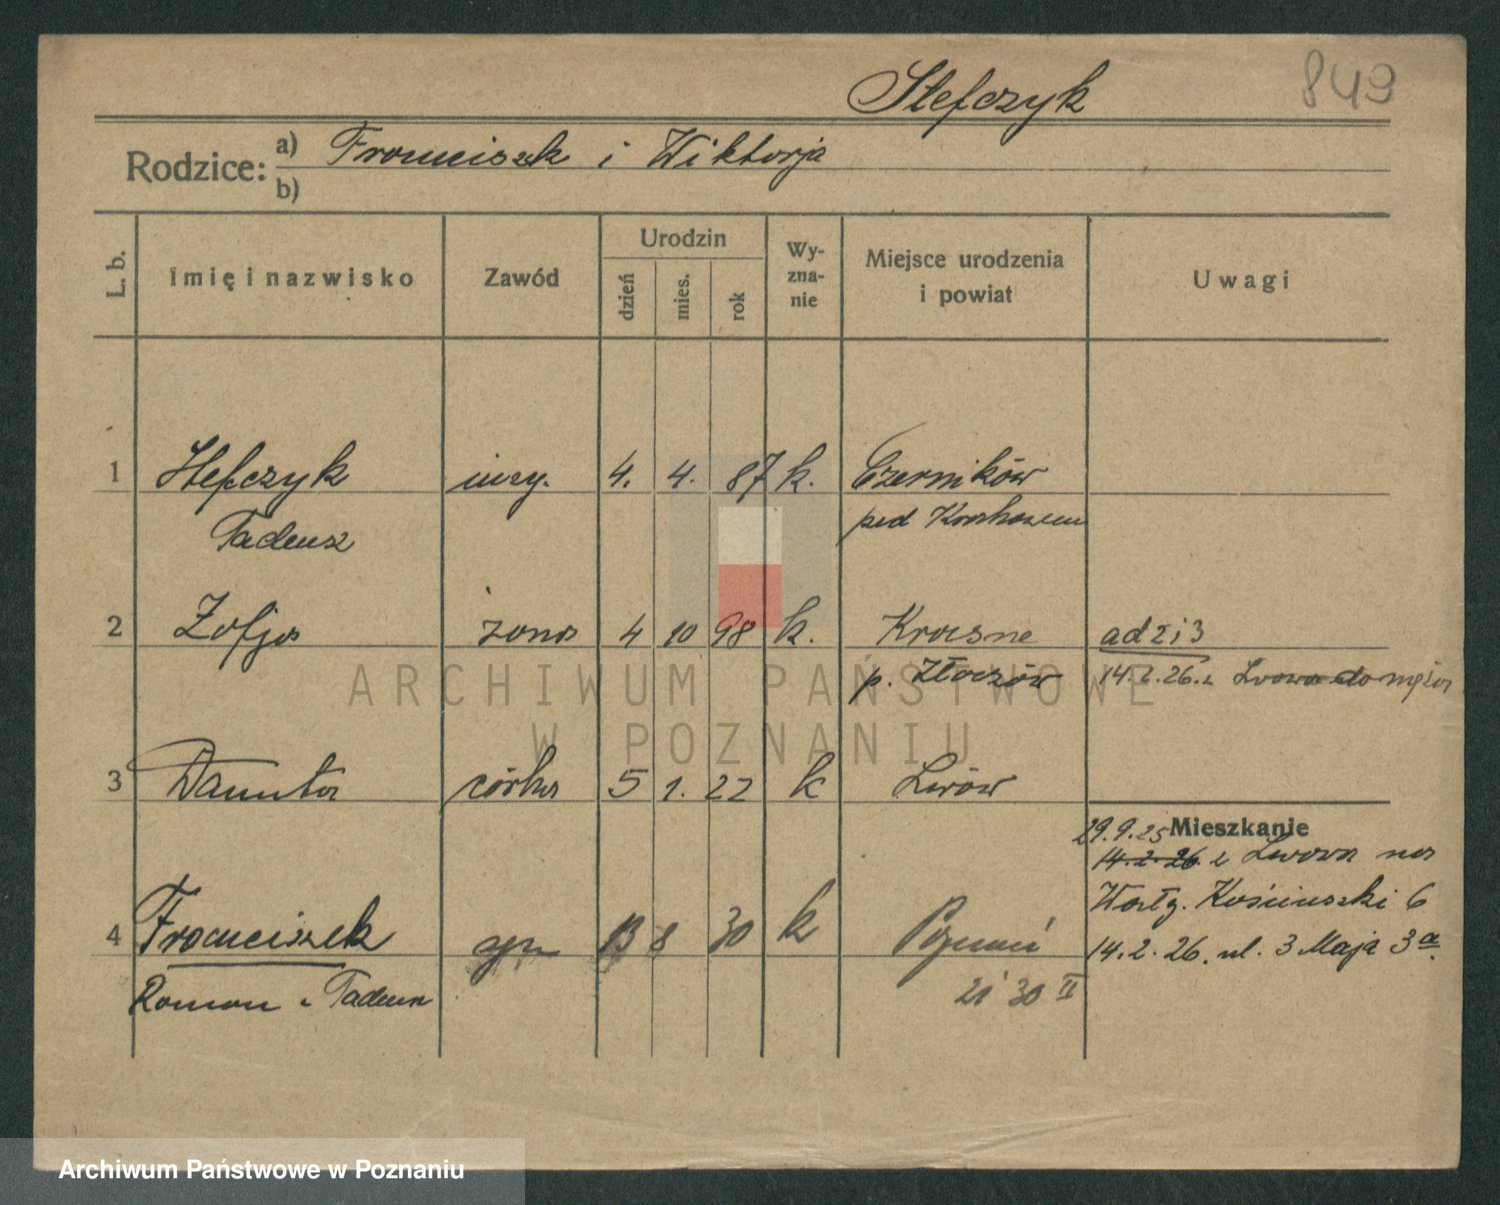 Stefczyk 849
Rodzice: a) Franciszek i Wiktorja
b)
L. b. Imię i nazwisko Zawód Urodzin dzień mies. rok Wyznanie Miejsce urodzenia i powiat Uwagi
1 Stefczyk inży. 4. 4. 87 k. Czerników
Tadeusz pod
2 Zofja żona 4 10 98 k. Krasne ad 2 i 3
p. Złoczów 14.2.26. z Lwowa do męża
3 Danuta córka 5 1. 22 k Lwów
Mieszkanie
29.9.25
14.2.26. z Lwowa na
Kościuszki 6
4 Franciszek syn 13 8 30 k Poznań 14.2.26. ul. 3 Maja 3a.
Roman Tadeusz 21 30 II
ARCHIWUM PAŃSTWOWE
W POZNANIU
Archiwum Państwowe w Poznaniu